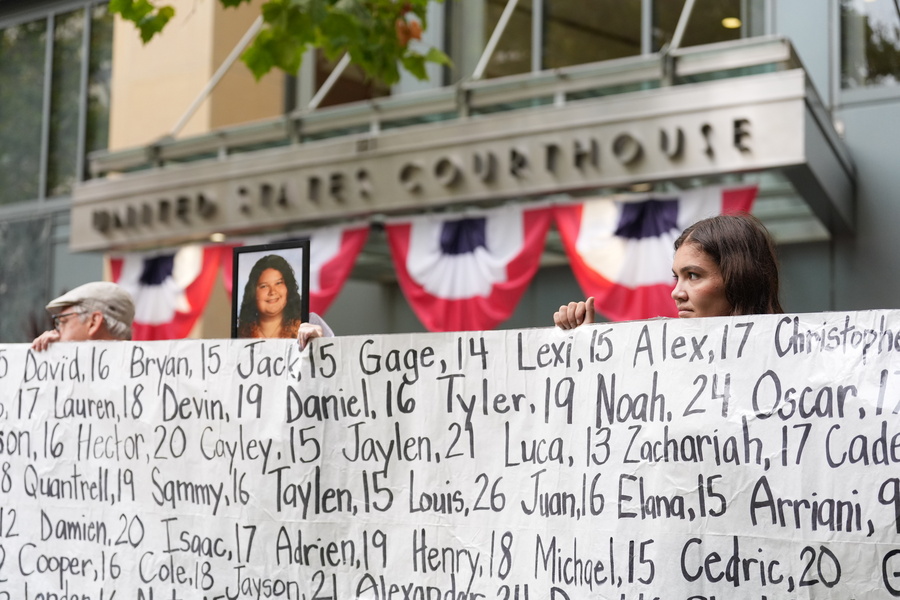 UNITED STATES COURTHOUSE
David,16 Bryan,15 Jack,15 Gage,14 Lexi,15 Alex,17 Christophe
17 Lauren,18 Devin,19 Daniel,16 Tyler,19 Noah,24 Oscar,
son,16 Hector,20 Cayley,15 Jaylen,21 Luca,13 Zachariah,17 Cade
8 Quantrell,19 Sammy,16 Taylen,15 Louis,26 Juan,16 Elana,15 Arriani,9
12 Damien,20 Isaac,17 Adrien,19 Henry,18 Michael,15 Cedric,20
Cooper,16 Cole,18 Jayson,21 Alexander